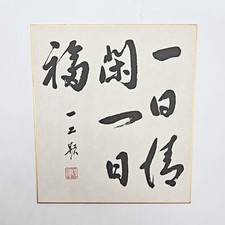 一日清
閑一日
福
一工題